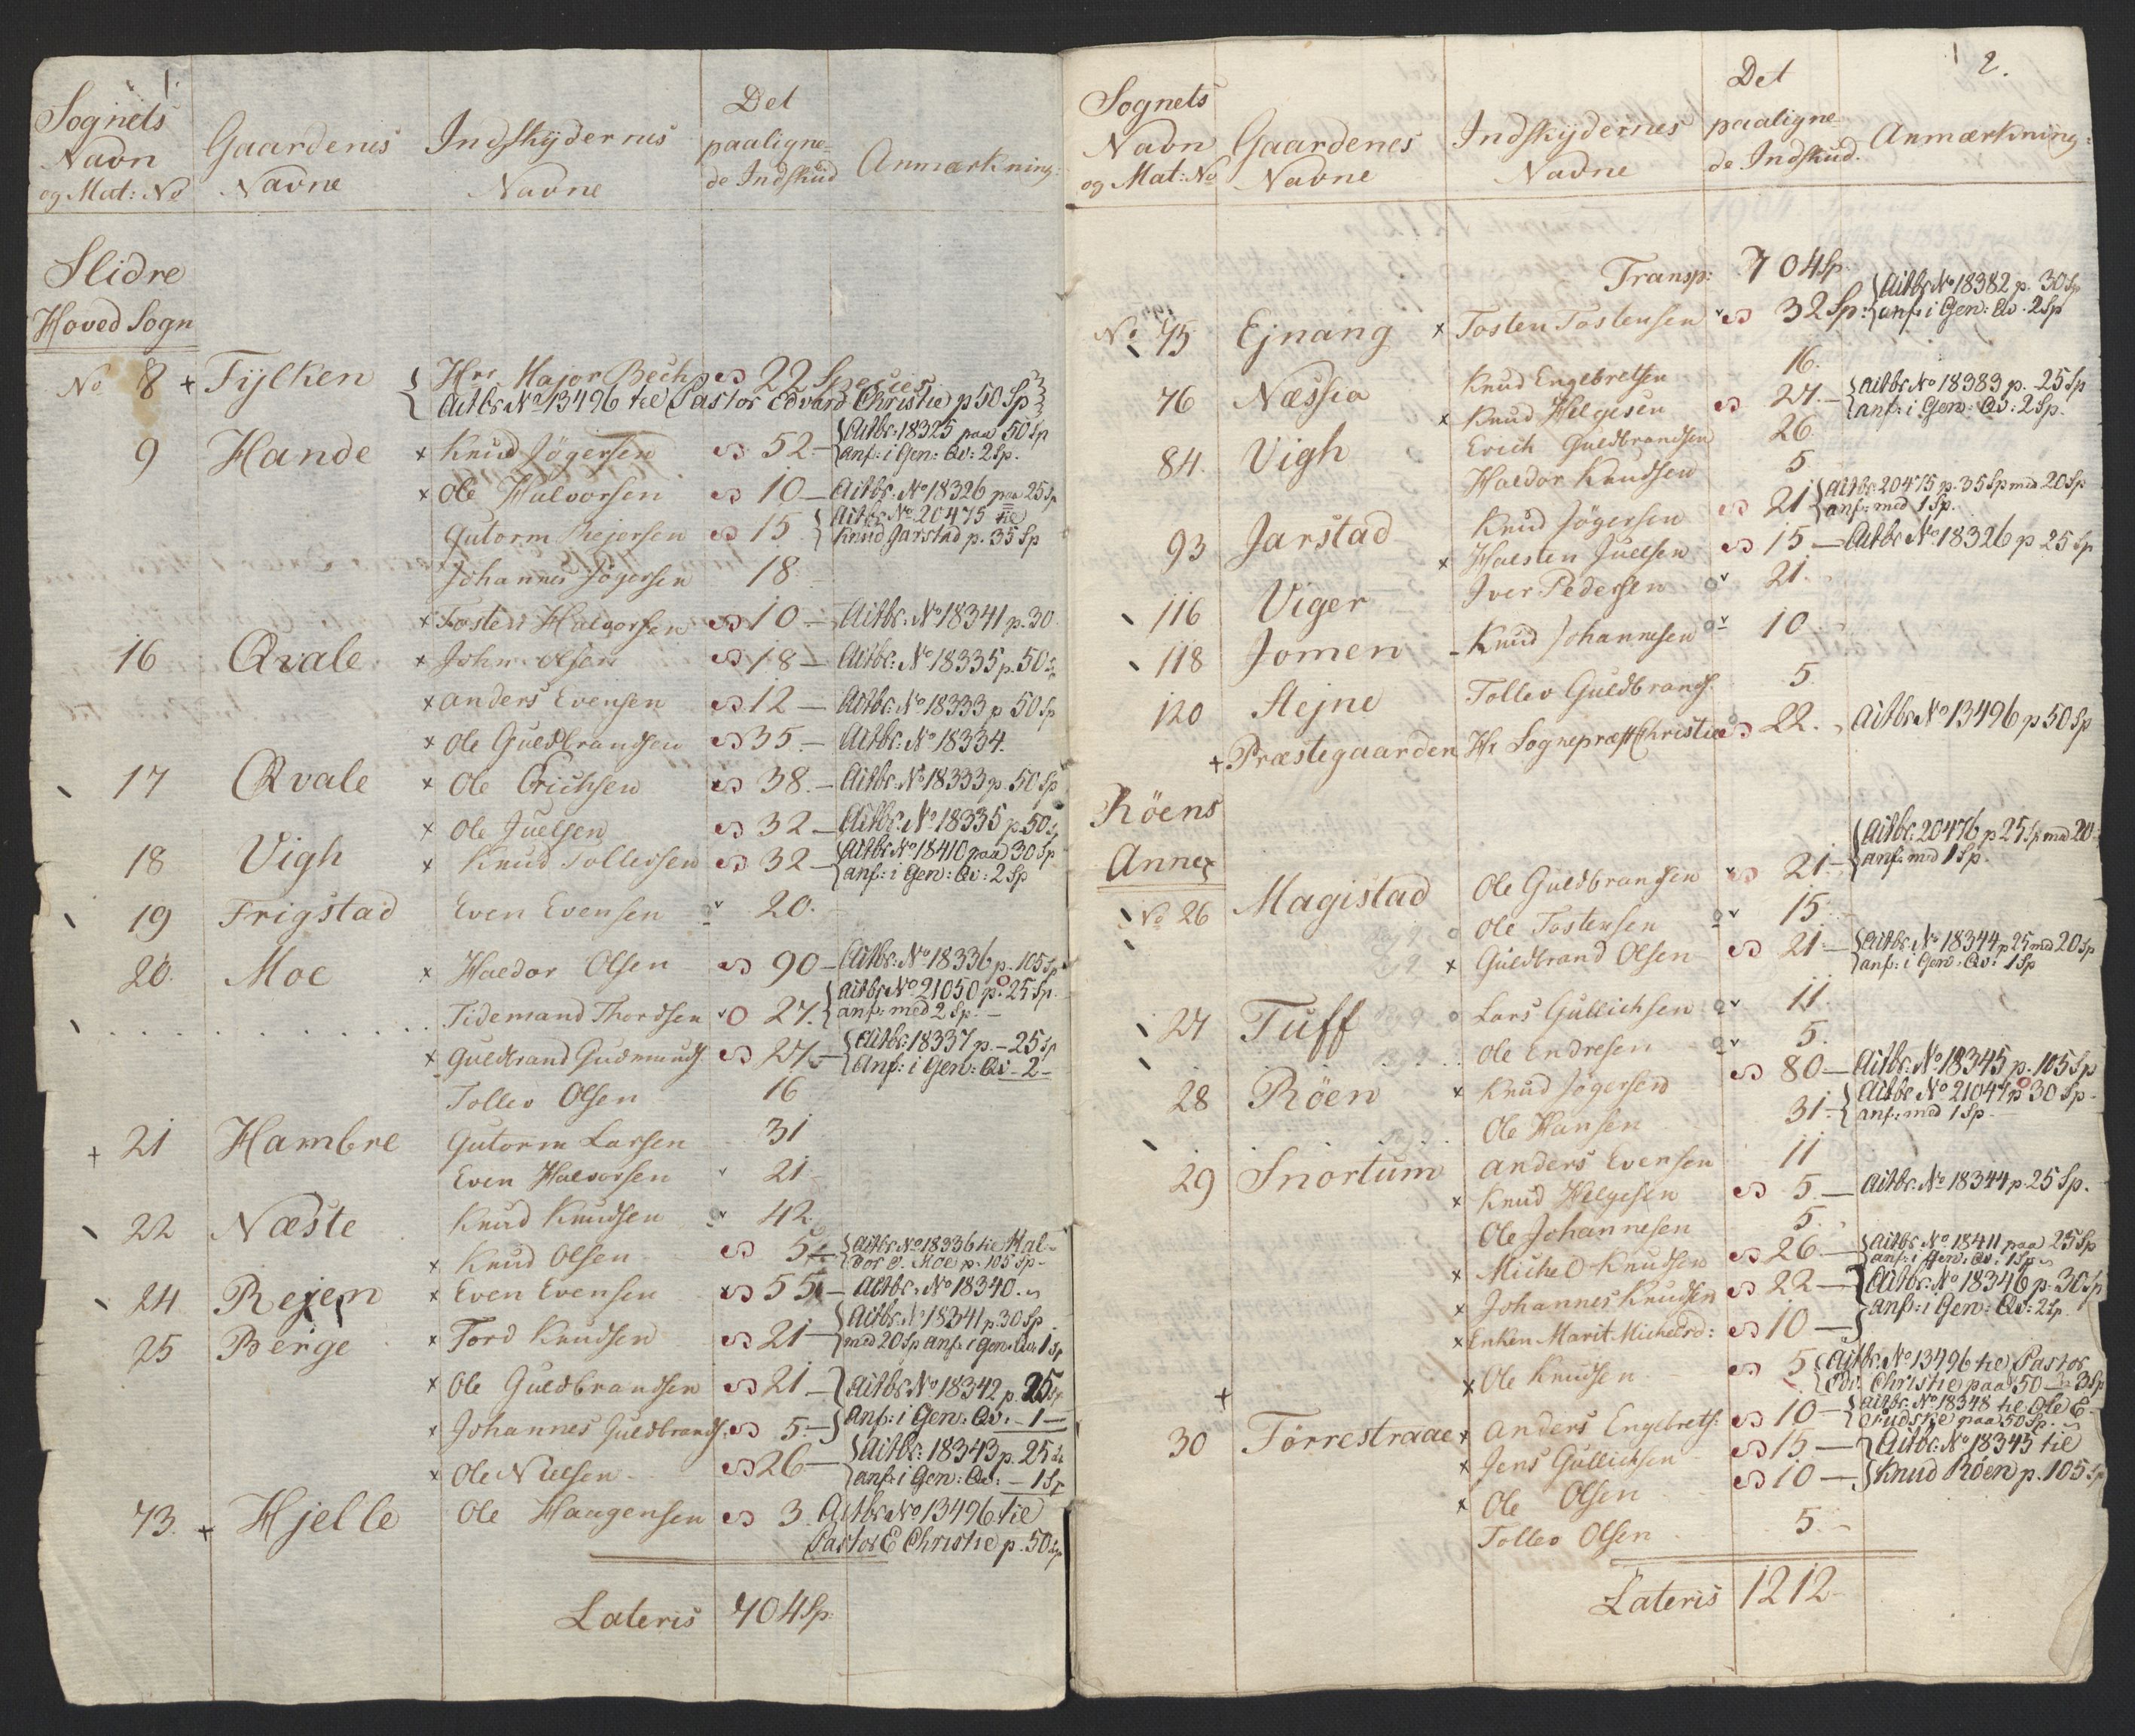 1.
Sognets Navn og Mat: No | Gaardenes Navne | Indskydernes Navne | Det paaligne- de Indskud | Anmærkning:
Slidre
Hoved Sogn
No 8 + Fylken { Hrr Major Bech 22 Species
Actbr No 13496 til Pastor Edvard Christie p 50 Sp
9 Hande x Knud Jögersen 52 – { Actbr: 18325 paa 50 Sp
anf: i Gen: Qv: 2 Sp.
x Ole Halvorsen 10 – Actbr: No 18326 paa 25 Sp
Gutorm Rejersen 15 { Actbr No 20475 til
Knud Jarstad p. 35 Sp
Johannes Jögersen 18 –
x Tosten Halvorsen 10 – Actbr: No 18341 p. 30
16 Qvale x John Olsen 18 – Actbr: No 18335 p. 50 Sp
x Anders Evensen 12 – Actbr: No 18333 p 50 Sp
x Ole Guldbrandsen 35 – Actbr: No 18334.
17 Qvale x Ole Erichsen 38 – Actbr: No 18333 p. 50 Sp
x Ole Juelsen 32 – Actbr: No 18335 p. 50 Sp
18 Vigh x Knud Tollevsen 32 – { Actbr No 18410 paa 30 Sp
anf: i Gen: Qv: 2 Sp
19 Frigstad Even Evensen 20.
20. Moe x Haldor Olsen 90 – Actbr: No 18336 p. 105 Sp
Tidemand Thordsen 27. { Actbr No 21050 p. 25 Sp.
anf: med 2 Sp. –
x Guldbrand Gudmunds. 27 – { Actbr: 18337 p. – 25 Sp
Anf: i Gen: Qv – 2 –
Tollev Olsen 16
+ 21 Hambre Gutorm Larsen 31
Even Halvorsen 21
22 Næste Knud Knudsen 42
x Knud Olsen 5 – { Actbr No 18336 til Hal-
dor O. Moe p. 105 Sp –
24 Rejen x Even Evensen 55 – Actbr: No 18340.
25 Berge x Tord Knudsen 21 – { Actbr: No 18341 p. 30 Sp
med 20 Sp anf: i Gen: Qv 1 Sp
x Ole Guldbrandsen 21 – } Actbr No 18342 p. 25 Sp
x Johannes Guldbrands. 5 – } Anf: i Gen: Qv: – 1 –
x Ole Nielsen 26 – { Actbr: 18343 p. 25 Sp
anf: i Gen: Qv: – 1 Sp
73. + Hjelle Ole Haagensen 3 Actbr No 13496 til
Pastor E Christie p. 50 Sp
Lateris 704 Sp:
2.
Sognets Navn og Mat: No | Gaardenes Navne | Indskydernes Navne | Det paaligne- de Indskud. | Anmærkning:
Transp: 704 Sp.
No 75 Ejnang x Tosten Tostensen 32 Sp: { Actbr No 18382 p. 30 Sp
anf: i Gen: Qv. 2 Sp
76 Næssia Knud Engebretsen 16.
x Knud Helgesen 27. – { Actbr No 18383 p. 25 Sp
anf: i Gen: Qv: 2 Sp.
84. Vigh Erich Guldbrandsen 26.
Haldor Knudsen 5
93 Jarstad Knud Jögersen 21 { Actbr 20475 p. 35 Sp med 20 Sp
anf: med 1 Sp.
x Halsten Juelsen 15 – Actbr No 18326 p 25 Sp
116 Viger Iver Pedersen 21.
118 Jomen Knud Johannesen 10.
120 Stejne Tollev Guldbrands. 5
+ Præstegaarden Hr Sognepræst Christie 22. Actbr No 13496 p 50 Sp
Röens
Annex
No 26 Magistad Ole Guldbrandsen 21 – { Actbr: 20476 p 25 Sp med 20
anf: med 1 Sp.
Ole Tostensen 15
x Guldbrand Olsen 21 – { Actbr: No 18344 p 25 med 20 Sp
anf: i Gen: Qv: 1 Sp
27 Tuff Lars Gullichsen 11
Ole Endresen 5.
28 Röen x Knud Jögersen 80 – Actbr: No 18345 p. 105 Sp
Ole Hansen 31 – { Actbr No 21047 p 30 Sp –
anf: med 1 Sp –
29 Snortum Anders Evensen 11
x Knud Helgesen 5 – Actbr: No 18344 p 25 Sp.
Ole Johannesen 5.
x Michel Knudsen 26 – { Actbr No 18411 paa 25 Sp
anf: i Gen: Qv: 1 Sp
x Johannes Knudsen 22 – } Actbr: No 18346 p. 30 Sp
x Enken Marit Michelsd: 10 – } anf: i Gen: Qv: 2 Sp.
+ x Ole Knudsen 5 { Actbr: No 13496 til Pastor
Edv. Christie paa 50 – 3 Sp
30 Törrestraae x Anders Engebrets: 10 – { Actbr: No 18348 til Ole E.
paa 50 Sp.
x Jens Gullichsen 15 – } Actbr: No 18345 til
x Ole Olsen 10 – } Knud Röen p. 105 Sp
Tollev Olsen 5 –
Lateris 1212 –